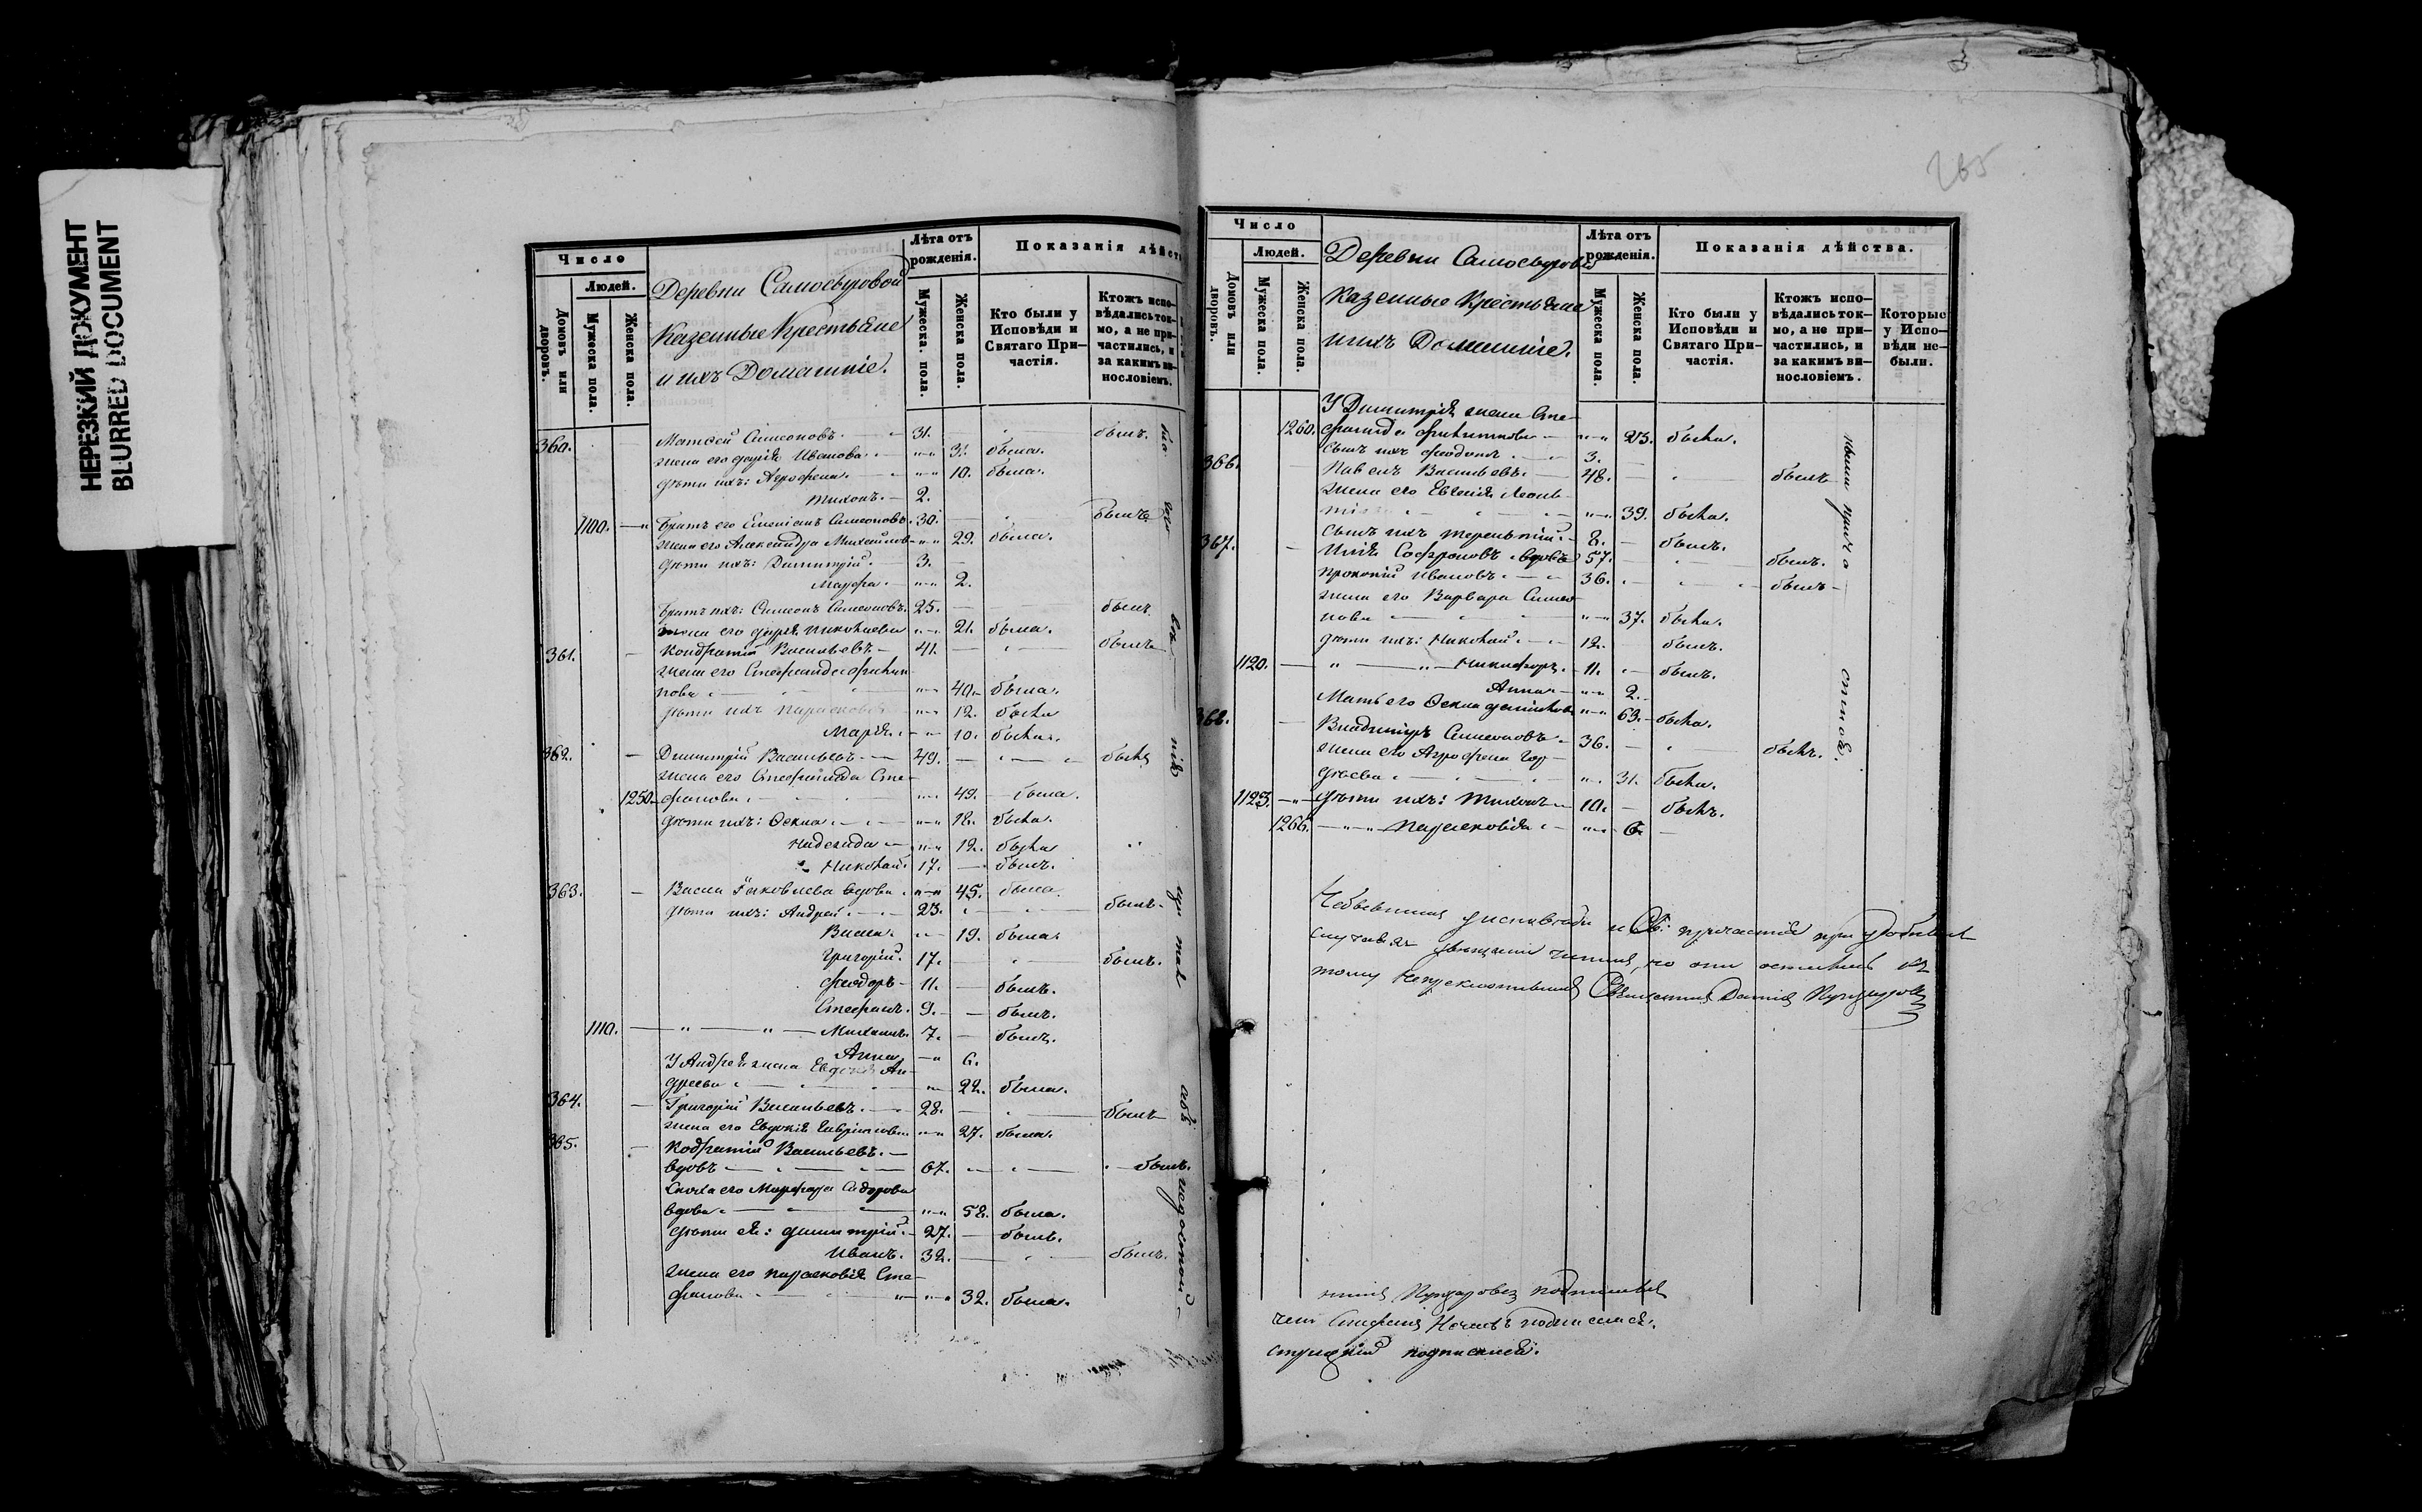 НЕРЕЗКИЙ ДОКУМЕНТ
BLURRED DOCUMENT
Число
Людей.
Домовъ или дворовъ.
Мужеска пола.
Женска пола.
Деревни Самосыровой
Казенные Крестьяне
и ихъ Домашніе.
Лѣта отъ рожденія.
Мужеска пола.
Женска пола.
Показанія дѣйст
Кто были у Исповѣди и Святаго Причастія.
Ктожъ исповѣдались токмо, а не причастились, и за какимъ винословіемъ.
360. Матѳей Симеоновъ. 31. былъ.
жена его Дарія Иванова. 31. была.
дѣти ихъ: Агрофена. 10. была.
Тихонъ. 2.
1100. Братъ его Симеоновъ. 30. былъ
жена его Александра Михайлов 29. была.
дѣти ихъ: Димитрій. 3.
Марфа. 2.
Братъ ихъ: Симеонъ Симеоновъ. 25. былъ
жена его Дарія Николаева 21. была.
361. Кондратій Васильевъ. 41. былъ
жена его Стефанида
пова 40. была.
дѣти ихъ Парасковія 12. была
Марія. 10. была.
362. Димитрій Васильевъ. 49. былъ
жена его Стефанида Сте-
1250. фанова. 49. была.
дѣти ихъ: Оекла. 18. была.
Надежда 12. была
Николай. 17. былъ.
363. Васса Яковлева вдова. 45. была
дѣти ихъ: Андрей. 23. былъ.
Васса. 19. была.
Григорій. 17. былъ.
Феодоръ 11. былъ.
Стефанъ. 9. былъ.
1110. Михаилъ. 7. былъ.
Анна 6.
У Андрея жена Евдокія Ан-
дреева 22. была.
364. Григорій Васильевъ. 28. былъ
жена его Евдокія Гаврилова 27. была.
365. Кодратій Васильевъ.
вдовъ 67. былъ.
Сноха его Марфа Сидорова
вдова 58. была.
дѣти ея: Димитрій. 27. былъ.
Иванъ. 32. былъ.
жена его Парасковія Сте-
фанова 32. была.
265
Число
Людей.
Домовъ или дворовъ.
Мужеска пола.
Женска пола.
Деревни Самосыровой
Казенные Крестьяне
и ихъ Домашніе.
Лѣта отъ рожденія.
Мужеска пола.
Женска пола.
Показанія дѣйства.
Кто были у Исповѣди и Святаго Причастія.
Ктожъ исповѣдались токмо, а не причастились, и за какимъ винословіемъ.
Которые у Исповѣди небыли.
У Димитрія жена Сте-
1260. фанида 23. была.
Сынъ ихъ Феодоръ. 3.
366. Павелъ Васильевъ. 48. былъ
жена его Евгенія Леонь-
39. была.
сынъ ихъ Терентій. 8. былъ.
367. Илія Софроновъ вдовъ 57. былъ.
Прокопій Ивановъ. 36. былъ
жена его Варвара Симео-
нова 37. была.
дѣти ихъ: Николай. 12. былъ.
1120. Никифоръ. 11. былъ.
Анна 2.
Мать его Оекла 63. была.
368. Владимиръ Симеоновъ 36. былъ.
жена его Агрофена Гор-
дѣева 31. была.
1123. дѣти ихъ: Тихонъ 10. былъ.
1266. Парасковія 6.
Небывшіе у исповѣди и Св: причастія при удобныхъ
случаяхъ
Священникъ
подписался.
подписался.